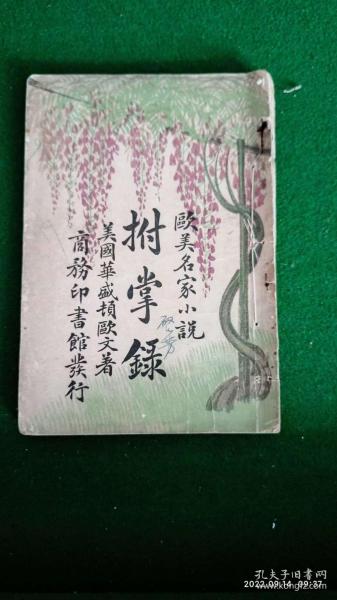 歐美名家小說
拊掌錄
美國華盛頓歐文著
商務印書館發行
孔夫子旧书网
2022.09.14 09:37